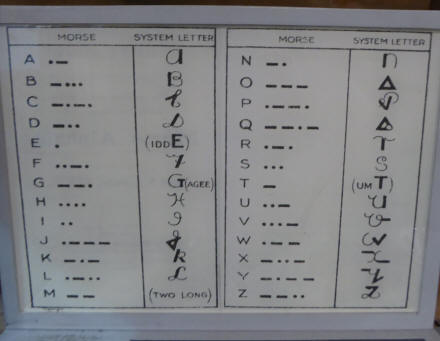 MORSE SYSTEM LETTER
A ·– a
B –··· B
C –·–· C
D –·· D
E · (IDD E)
F ··–· F
G ––· G (AGEE)
H ···· H
I ·· I
J ·––– J
K –·– k
L ·–·· L
M –– (TWO LONG)
MORSE SYSTEM LETTER
N –· n
O –––
P ·––· P
Q ––·–
R ·–· r
S ··· S
T – (UM T)
U ··– U
V ···– V
W ·–– W
X –··– X
Y –·–– Y
Z ––·· Z